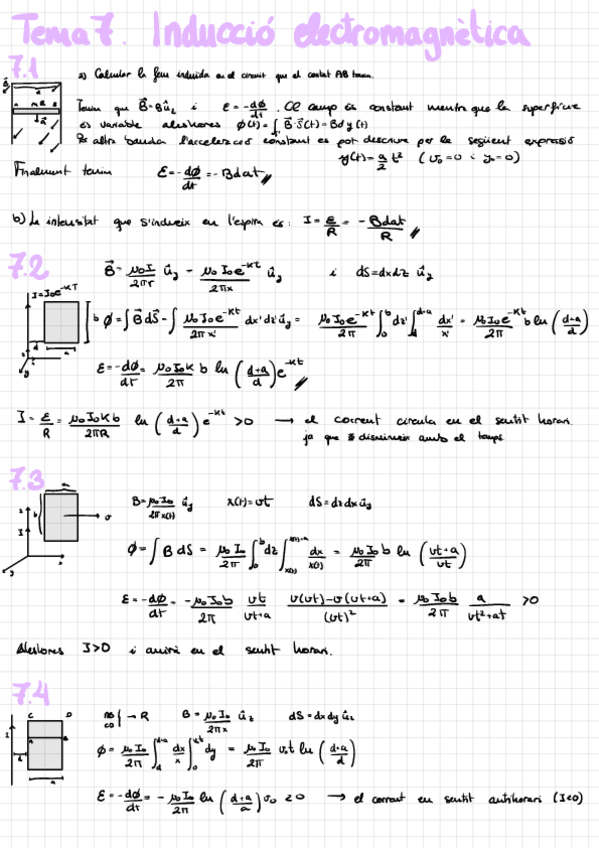 Tema 7. Inducció electromagnètica
7.1
a) Calcular la fem induida en el circuit que el costat AB tanca.
Tenim que B⃗ = B û_z i ε = -dφ/dt. El camp és constant mentre que la superfície
és variable aleshores φ(t) = ∫ B⃗·S⃗(t) = B d y(t)
altra banda l'acceleració constant es pot descriure per la següent expressió
y(t) = a/2 t² (v₀ = 0 i y₀ = 0)
Finalment tenim ε = -dφ/dt = -Bdat
b) La intensitat que s'indueix en l'espira és: I = ε/R = -Bdat/R
7.2
B⃗ = μ₀I/2πr û_y = μ₀I₀e^-kt/2πx û_y i dS = dxdz û_y
I = I₀e^-kt
b φ = ∫ B⃗ dS⃗ = ∫ μ₀I₀e^-kt/2πx' dx'dz' û_y = μ₀I₀e^-kt/2π ∫₀^b dz' ∫_d^d+a dx'/x' = μ₀I₀e^-kt/2π b ln (d+a/d)
ε = -dφ/dt = μ₀I₀k/2π b ln (d+a/d) e^-kt
I = ε/R = μ₀I₀kb/2πR ln (d+a/d) e^-kt >0 → el corrent circula en el sentit horari
ja que disminueix amb el temps
7.3
B = μ₀I₀/2πx(t) û_y x(t) = vt dS = dz dx û_y
φ = ∫ B dS = μ₀I₀/2π ∫₀^b dz ∫_x(t)^x(t)+a dx/x(t) = μ₀I₀/2π b ln (vt+a/vt)
ε = -dφ/dt = -μ₀I₀b/2π vt/vt+a v(vt)-v(vt+a)/(vt)² = μ₀I₀b/2π a/vt²+at >0
Aleshores I>0 i anirà en el sentit horari.
7.4
AB CD } → R B = μ₀I₀/2πx û_z dS = dx dy û_z
φ = μ₀I₀/2π ∫_d^d+a dx/x ∫₀^vt dy = μ₀I₀/2π v₀t ln (d+a/d)
ε = -dφ/dt = -μ₀I₀/2π ln (d+a/a) v₀ ≥ 0 → el corrent en sentit antihorari (I<0)